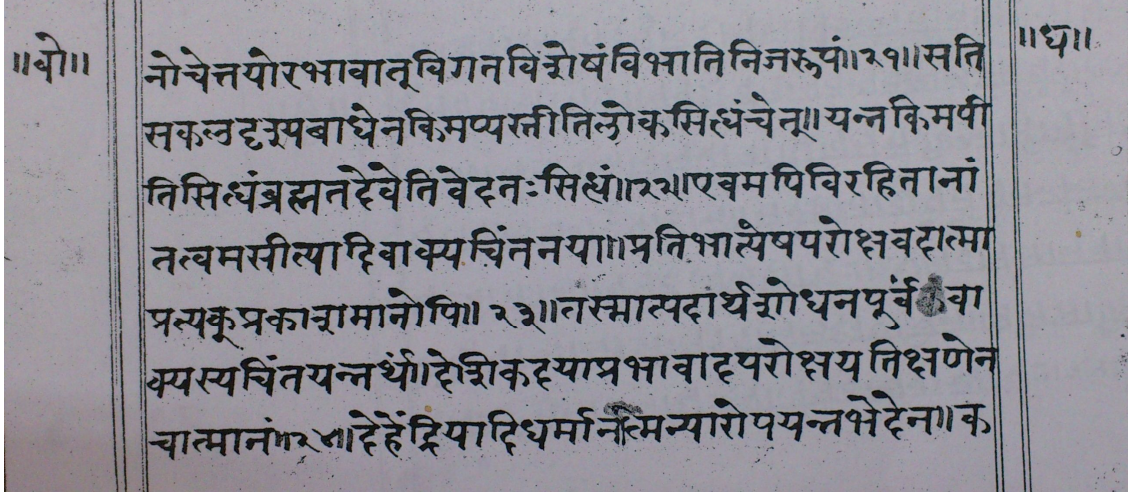 ॥बो॥
॥ध॥
नोचेत्तयोरभावात्तूविगतविशेषंविभातिनिजरूपं॥२१॥सति
सकलदृश्यबाधेनकिमप्यस्तीतिलोकसिध्धंचेत्॥यन्नकिमपी
तिसिध्धंब्रह्मतदेवेतिवेदतःसिध्धं॥२२॥एवमपिविरहितानां
तत्वमसीत्यादिवाक्यचिंतनया॥प्रतिभात्येषपरोक्षवदात्मा
प्रत्यक्प्रकाशमानोपि॥२३॥तस्मात्पदार्थशोधनपूर्वंवा
क्यस्यचिंतयन्नर्थं॥देशिकदयाप्रभावादपरोक्षयतिक्षणेन
चात्मानं॥२४॥देहेंद्रियादिधर्मानात्मन्यारोपयन्नभेदेन॥क